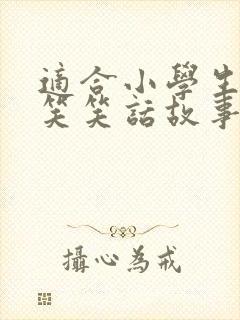 適合小學生
笑笑話故事
攝心為戒